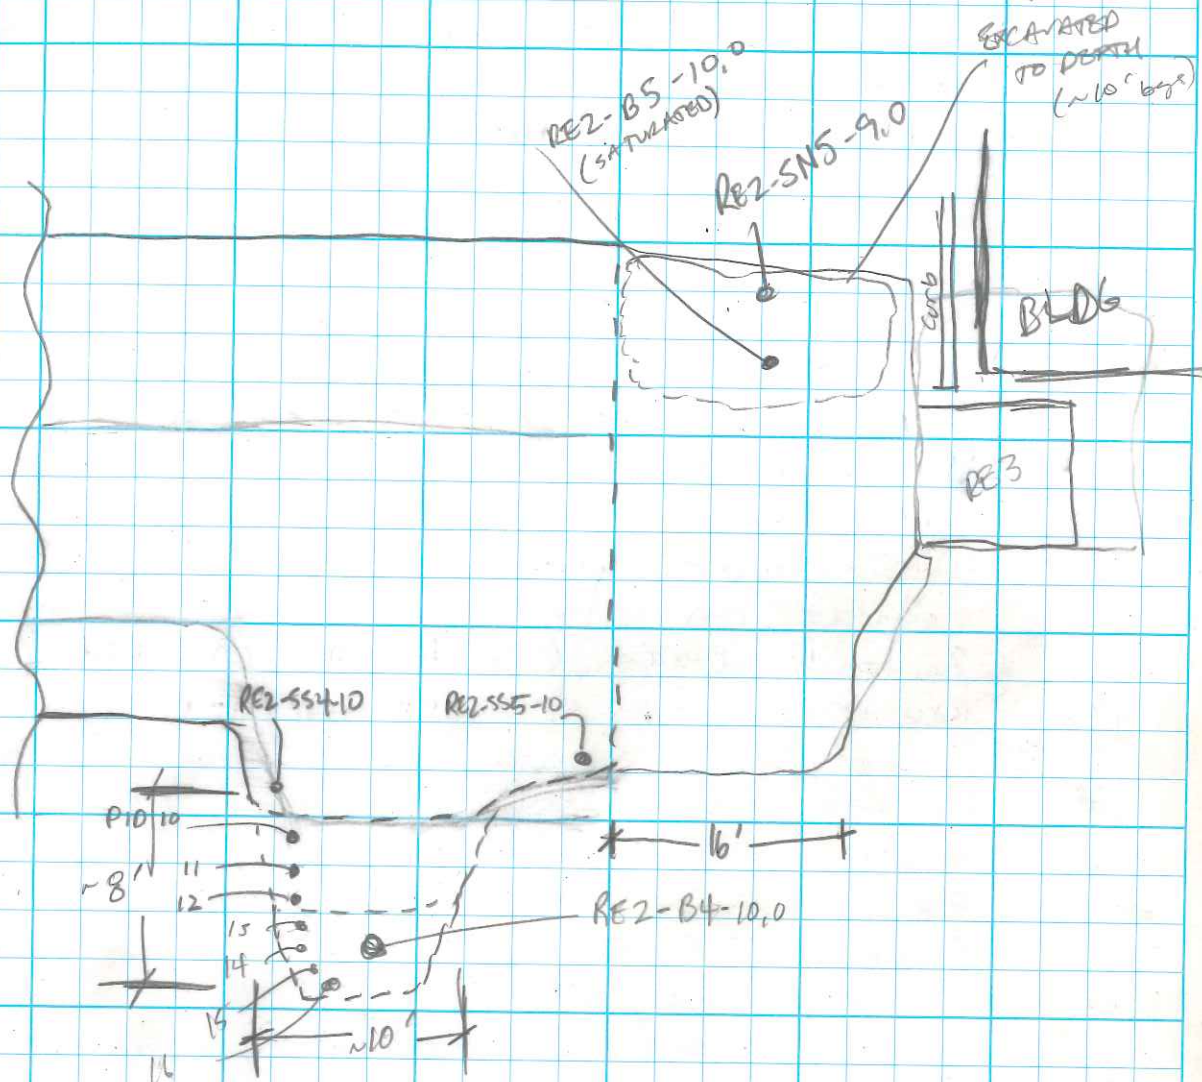 EXCAVATED
TO DEPTH
(~10' bgs)
RE2-B5-10.0
(SATURATED)
RE2-SN5-9.0
curb
BLDG
RE3
RE2-SS4-10
RE2-SS5-10
PID 10
11
~8'
12
13
14
15
16
16'
RE2-B4-10.0
~10'